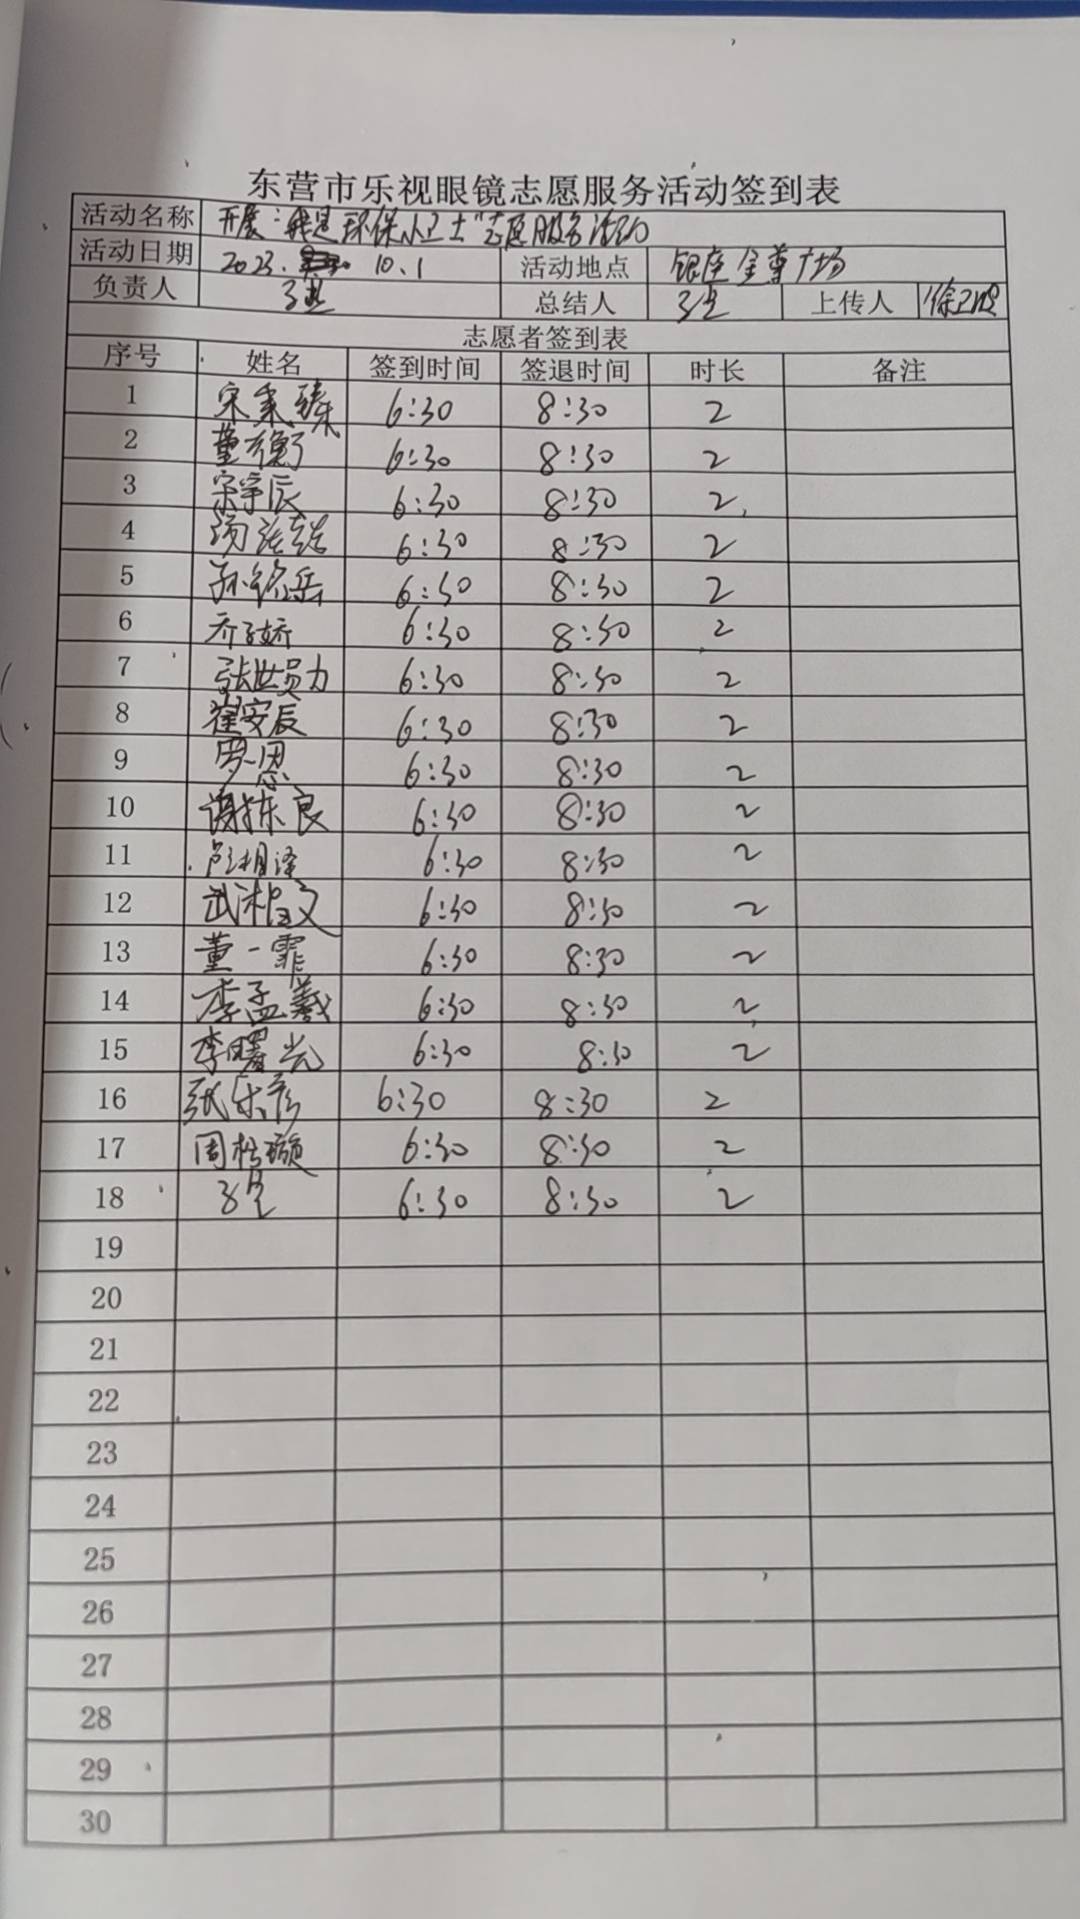 东营市乐视眼镜志愿服务活动签到表
活动名称 开展:我是环保小卫士"志愿服务活动
活动日期 2023. 10.1 活动地点 银座金尊广场
负责人 总结人 上传人
志愿者签到表
序号 姓名 签到时间 签退时间 时长 备注
1 宋秉臻 6:30 8:30 2
2 董衡 6:30 8:30 2
3 宋宇辰 6:30 8:30 2
4 6:30 8:30 2
5 孙铭岳 6:30 8:30 2
6 乔子娇 6:30 8:30 2
7 张世勋 6:30 8:30 2
8 崔安辰 6:30 8:30 2
9 罗一恩 6:30 8:30 2
10 谢栋良 6:30 8:30 2
11 卢相泽 6:30 8:30 2
12 武湘文 6:30 8:30 2
13 董一霏 6:30 8:30 2
14 李孟羲 6:30 8:30 2
15 李曙光 6:30 8:30 2
16 张乐彦 6:30 8:30 2
17 周松璇 6:30 8:30 2
18 6:30 8:30 2
19
20
21
22
23
24
25
26
27
28
29
30